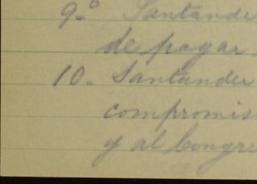 9.º Santander
de pagar
10. Santander
compromis
y al Congre